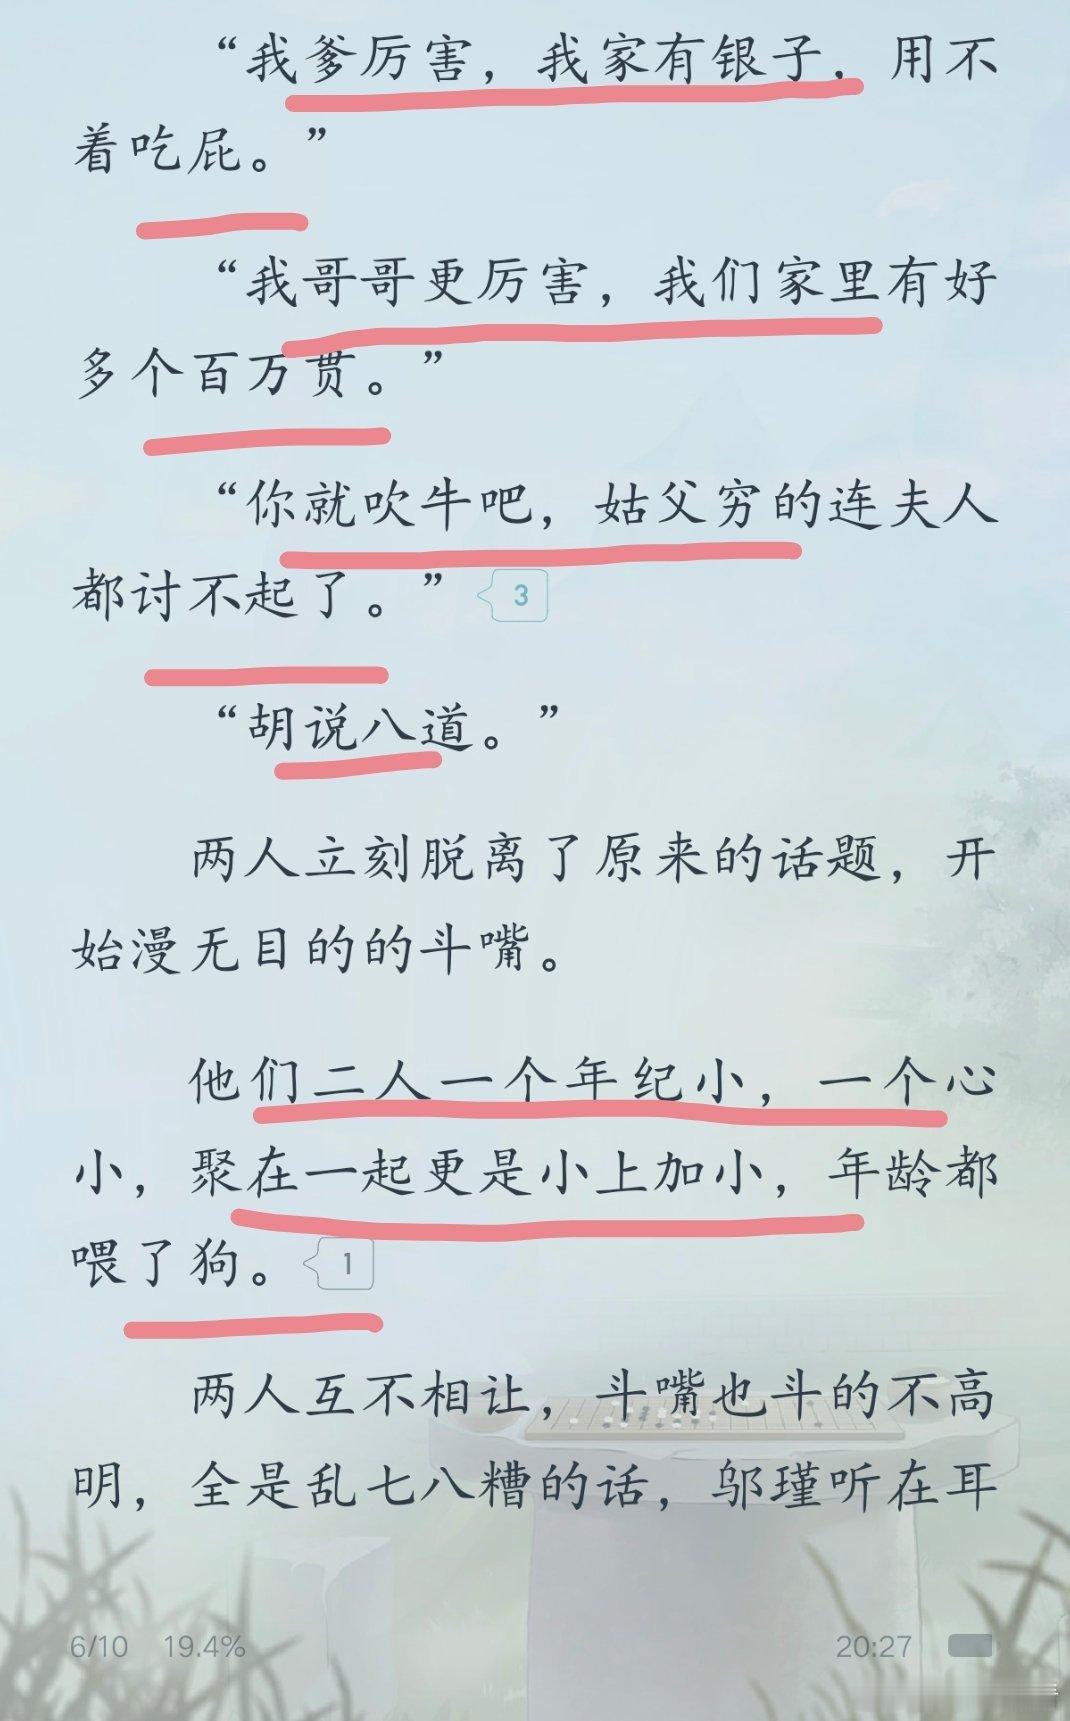 “我爹厉害，我家有银子，用不
着吃屁。”
“我哥哥更厉害，我们家里有好
多个百万贯。”
“你就吹牛吧，姑父穷的连夫人
都讨不起了。” 3
“胡说八道。”
两人立刻脱离了原来的话题，开
始漫无目的的斗嘴。
他们二人一个年纪小，一个心
小，聚在一起更是小上加小，年龄都
喂了狗。 1
两人互不相让，斗嘴也斗的不高
明，全是乱七八糟的话，邬瑾听在耳
6/10 19.4% 20:27